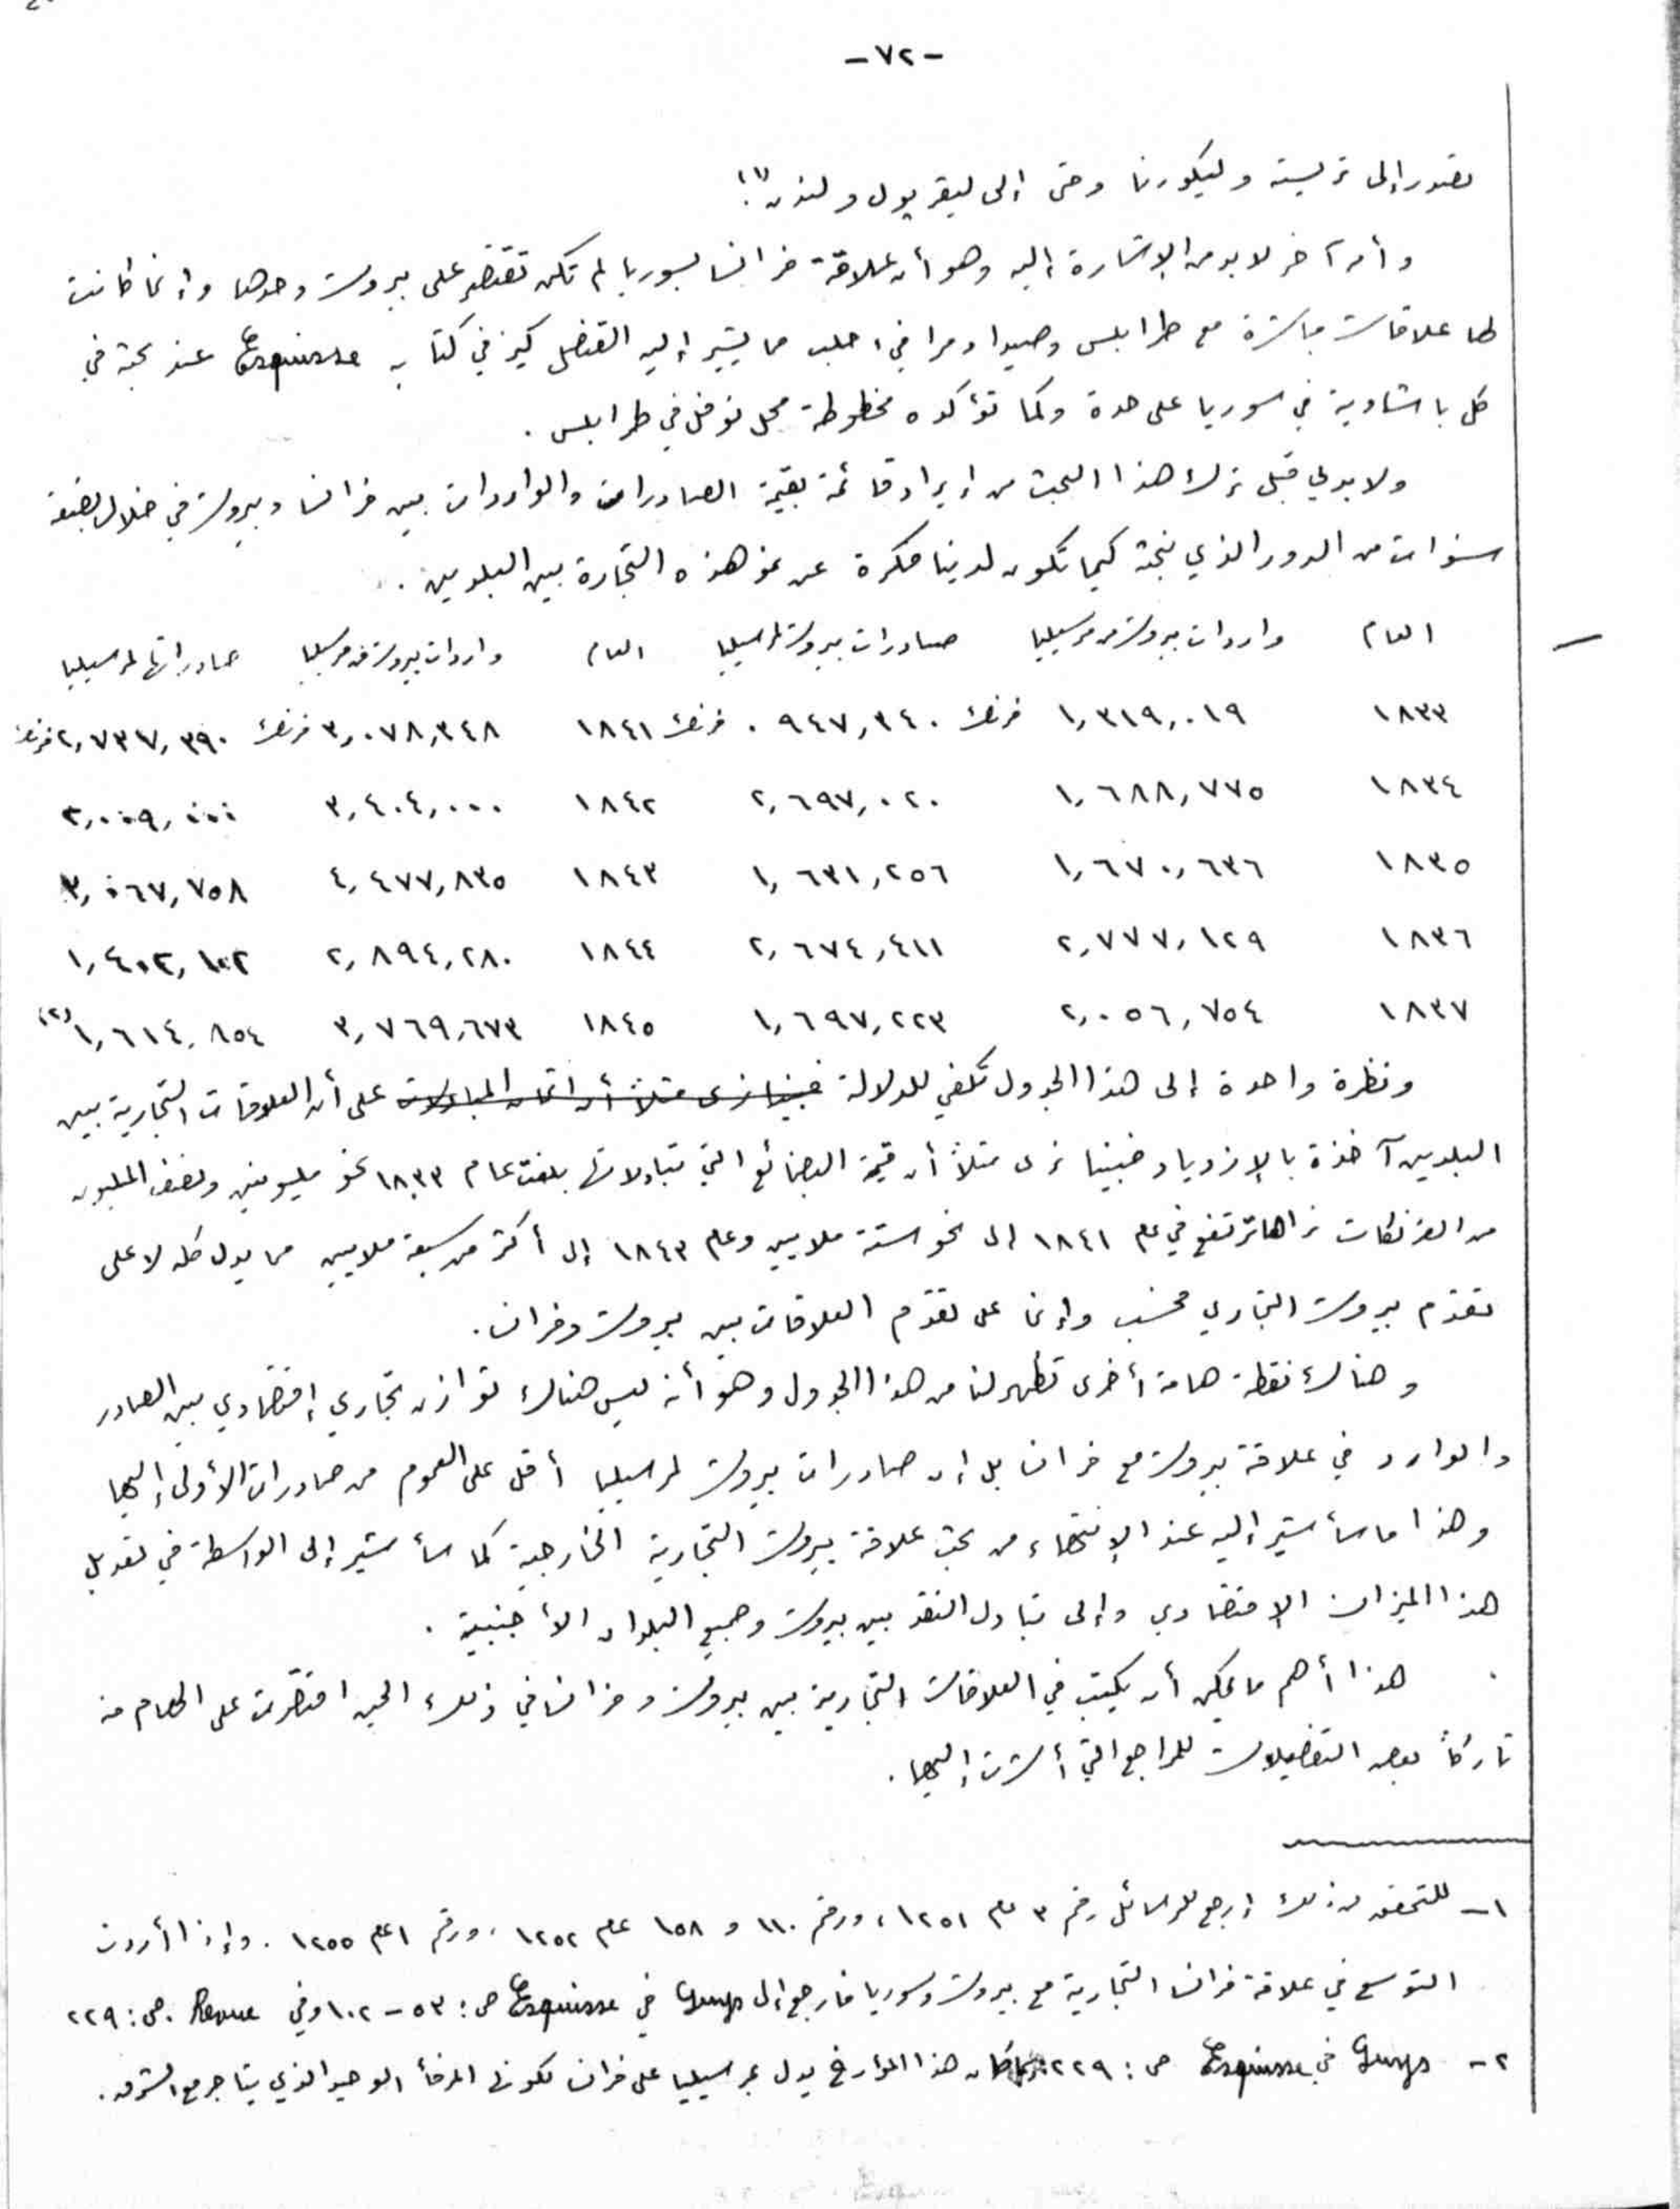 -٧٢-
تصدر إلى تريسته وليكورنا وحتى إلى ليقربول ولندن(١).
وأمر آخر لا بد من الإشارة إليه وهو أن علاقة فرانسا بسوريا لم تكن تقتصر على بيروت وحدها وإنما كانت
لها علاقات مباشرة مع طرابلس وصيدا ومرافئ حلب مما يشير إليه القنصل كيز في كتابه Esquisse عند بحثه في
كل باشاوية في سوريا على حدة وكما تؤكده مخطوطة محل نوفل في طرابلس .
ولا بد لي قبل ترك هذا البحث من إيراد قائمة بقيمة الصادرات والواردات بين فرانسا وبيروت في خلال بضعة
سنوات من الدور الذي نبحثه كيما تكون لدينا فكرة عن نمو هذه التجارة بين البلدين .
العام واردات بيروت من مرسيليا صادرات بيروت لمرسيليا العام واردات بيروت من مرسيليا صادراتها لمرسيليا
١٨٣٣ ١,٣١٩,٠١٩ فرنك ٩٤٧,٣٤٠ فرنك ١٨٤١ ٣,٠٧٨,٣٤٨ فرنك ٢,٧٣٧,٣٩٠ فرنك
١٨٣٤ ١,٦٨٨,٧٧٥ ٢,٦٩٧,٠٢٠ ١٨٤٢ ٣,٤٠٤,٠٠٠ ٣,٠٠٩,٠٠٠
١٨٣٥ ١,٦٧٠,٦٣٦ ١,٦٣١,٢٥٦ ١٨٤٣ ٤,٤٧٧,٨٣٥ ٣,٠٦٧,٧٥٨
١٨٣٦ ٢,٧٧٧,١٢٩ ٢,٦٧٤,٤١١ ١٨٤٤ ٢,٨٩٤,٢٨٠
١٨٣٧ ٢,٠٥٦,٧٥٤ ١,٦٩٧,٢٢٣ ١٨٤٥ ٣,٧٦٩,٦٧٣ ١,٦١٤,٨٥٤(٢)
ونظرة واحدة إلى هذا الجدول تكفي للدلالة فبينما نرى مثلاً أن أثمان المبادلات على أن العلاقات التجارية بين
البلدين آخذة بالإزدياد فبينما نرى مثلاً أن قيمة البضائع التي تبادلاتها بلغت عام ١٨٣٣ نحو مليونين ونصف المليون
من الفرنكات نراها ترتفع في عام ١٨٤١ إلى نحو ستة ملايين وعام ١٨٤٣ إلى أكثر من سبعة ملايين مما يدل كله لا على
تقدّم بيروت التجاري فحسب وإنما على تقدّم العلاقات بين بيروت وفرانسا.
وهناك نقطة هامة أخرى تظهر لنا من هذا الجدول وهو أنه ليس هناك توازن تجاري إقتصادي بين الصادر
والوارد في علاقة بيروت مع فرانسا بل إن صادرات بيروت لمرسيليا أقل على العموم من صادرات الأولى إليها
وهذا ما سأشير إليه عند الإنتهاء من بحث علاقة بيروت التجارية الخارجية كما سأشير إلى الواسطة في تعديل
هذا الميزان الإقتصادي وإلى تبادل النقد بين بيروت وجميع البلدان الأجنبية .
هذا أهم ما يمكن أن يكتب في العلاقات التجارية بين بيروت وفرانسا في ذلك الحين اقتصرت على الهام منه
تاركاً بعض التفصيلات للمراجع التي أشرت إليها.
١- للتحقق من ذلك إرجع للرسائل رقم ٣ عام ١٢٥١، ورقم ١١٠ و ١٥٨ عام ١٢٥٢، ورقم ١ عام ١٢٥٥. وإذا أردت
التوسع في علاقة فرانسا التجارية مع بيروت وسوريا فارجع إلى Guys في Esquisse ص: ٥٣ - ١٠٢ وفي Revue ص: ٢٢٩
٢- Guys في Esquisse ص: ٢٢٩ هذا المؤرخ يدل بمرسيليا على فرانسا لكونها المرفأ الوحيد الذي يتاجر مع الشرق.